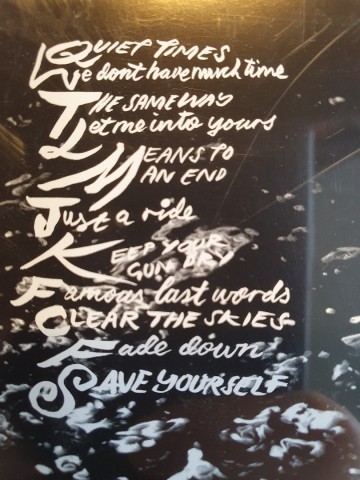 QUIET TIMES
We don't have much time
THE SAME WAY
Let me into yours
MEANS TO
AN END
Just a ride
KEEP YOUR
GUN DRY
Famous last words
CLEAR THE SKIES
Fade down
SAVE YOURSELF